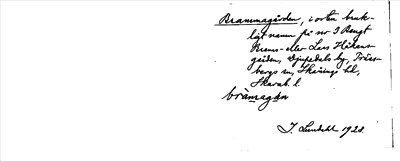 Brammagården, i orten bruk-
ligt namn på nr 3 Bengt
Brems- eller Lars Håkans-
gården, Djupedals by, Träss-
bergs sn, Skånings hd,
Skarab. l.
bràmagán
J. Lundahl 1928.